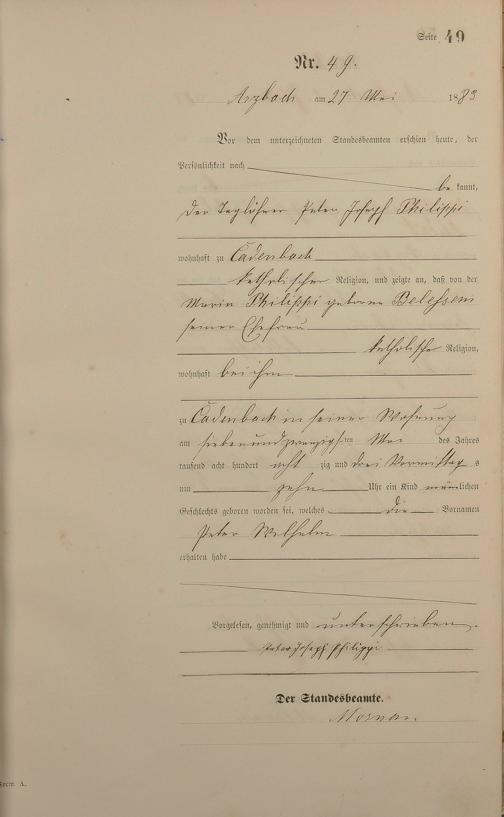 Seite 49
Nr. 49.
Arzbach am 27 Mai 1883
Vor dem unterzeichneten Standesbeamten erschien heute, der
Persönlichkeit nach
be kannt,
der Taglöhner Peter Joseph Philippi
wohnhaft zu Cadenbach
katholischer Religion, und zeigte an, daß von der
Maria Philippi geborne
seiner Ehefrau
katholische Religion,
wohnhaft bei ihm
zu Cadenbach in seiner Wohnung
am siebenundzwanzigsten Mai des Jahres
tausend acht hundert acht zig und drei Vormittag s
um zehn Uhr ein Kind männlichen
Geschlechts geboren worden sei, welches die Vornamen
Peter Wilhelm
erhalten habe
Vorgelesen, genehmigt und unterschrieben.
Peter Joseph Philippi
Der Standesbeamte.
Form. A.